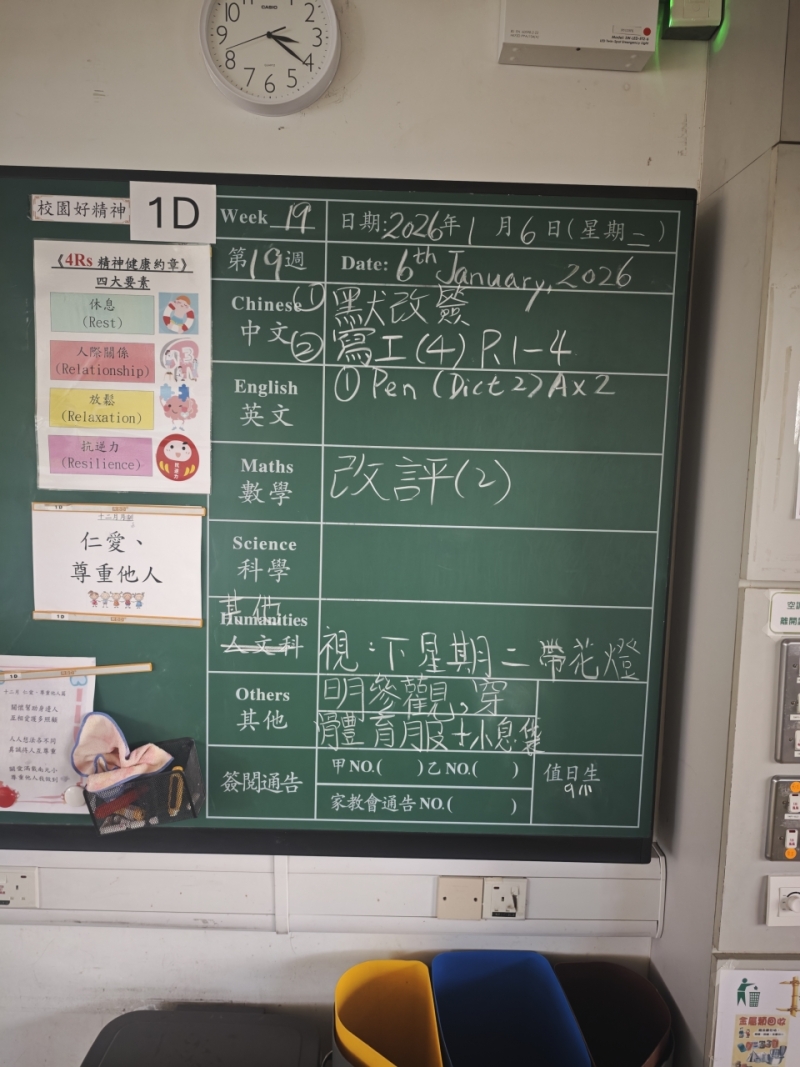 10
2
3
4
5
6
7
8
9
CASIO
QUARTZ
校園好精神
1D
Week 19
日期:2026年1月6日(星期二)
第19週
Date: 6th January, 2026
《4Rs 精神健康約章》
四大要素
休息
(Rest)
人際關係
(Relationship)
放鬆
(Relaxation)
抗逆力
(Resilience)
Chinese
中文
① 默改簽
② 寫工(4) P.1-4
English
英文
① Pen (Dict 2) A×2
Maths
數學
改評(2)
Science
科學
其他
Humanities
人文科
視:下星期二帶花燈
Others
其他
明參觀,穿
體育服+小息袋
簽閱通告
甲NO.( )乙NO.( )
家教會通告NO.( )
值日生
仁愛、
尊重他人
十二月 仁愛、尊重他人篇
關懷幫助身邊人
互相愛護多照顧
人人想法各不同